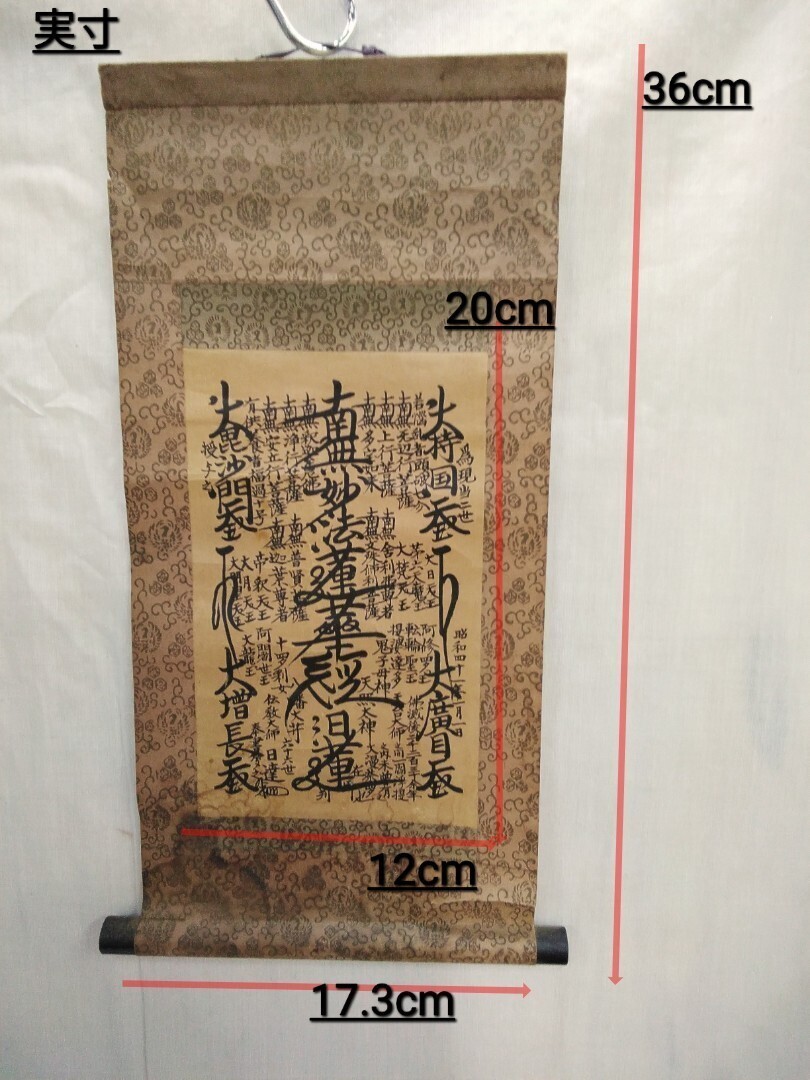 実寸
36cm
20cm
12cm
17.3cm
為現当二世
大持国天王
大廣目天王
若悩乱者頭破七分
南無無辺行菩薩
南無上行菩薩
南無多宝如来
南無妙法蓮華経
日蓮
南無釈迦牟尼仏
南無浄行菩薩
南無安立行菩薩
有供養者福過十号
大毘沙門天王
大増長天王
授与之
大日天王
第六天魔王
大梵天王
南無舎利弗尊者
南無文殊師利菩薩
南無普賢菩薩
南無迦葉尊者
帝釈天王
大月天王
大明星天王
阿修羅王
転輪聖王
提婆達多
鬼子母神
天照太神
八幡大菩薩
十羅刹女
阿闍世王
大龍王
天台大師
伝教大師
六十六世
日達